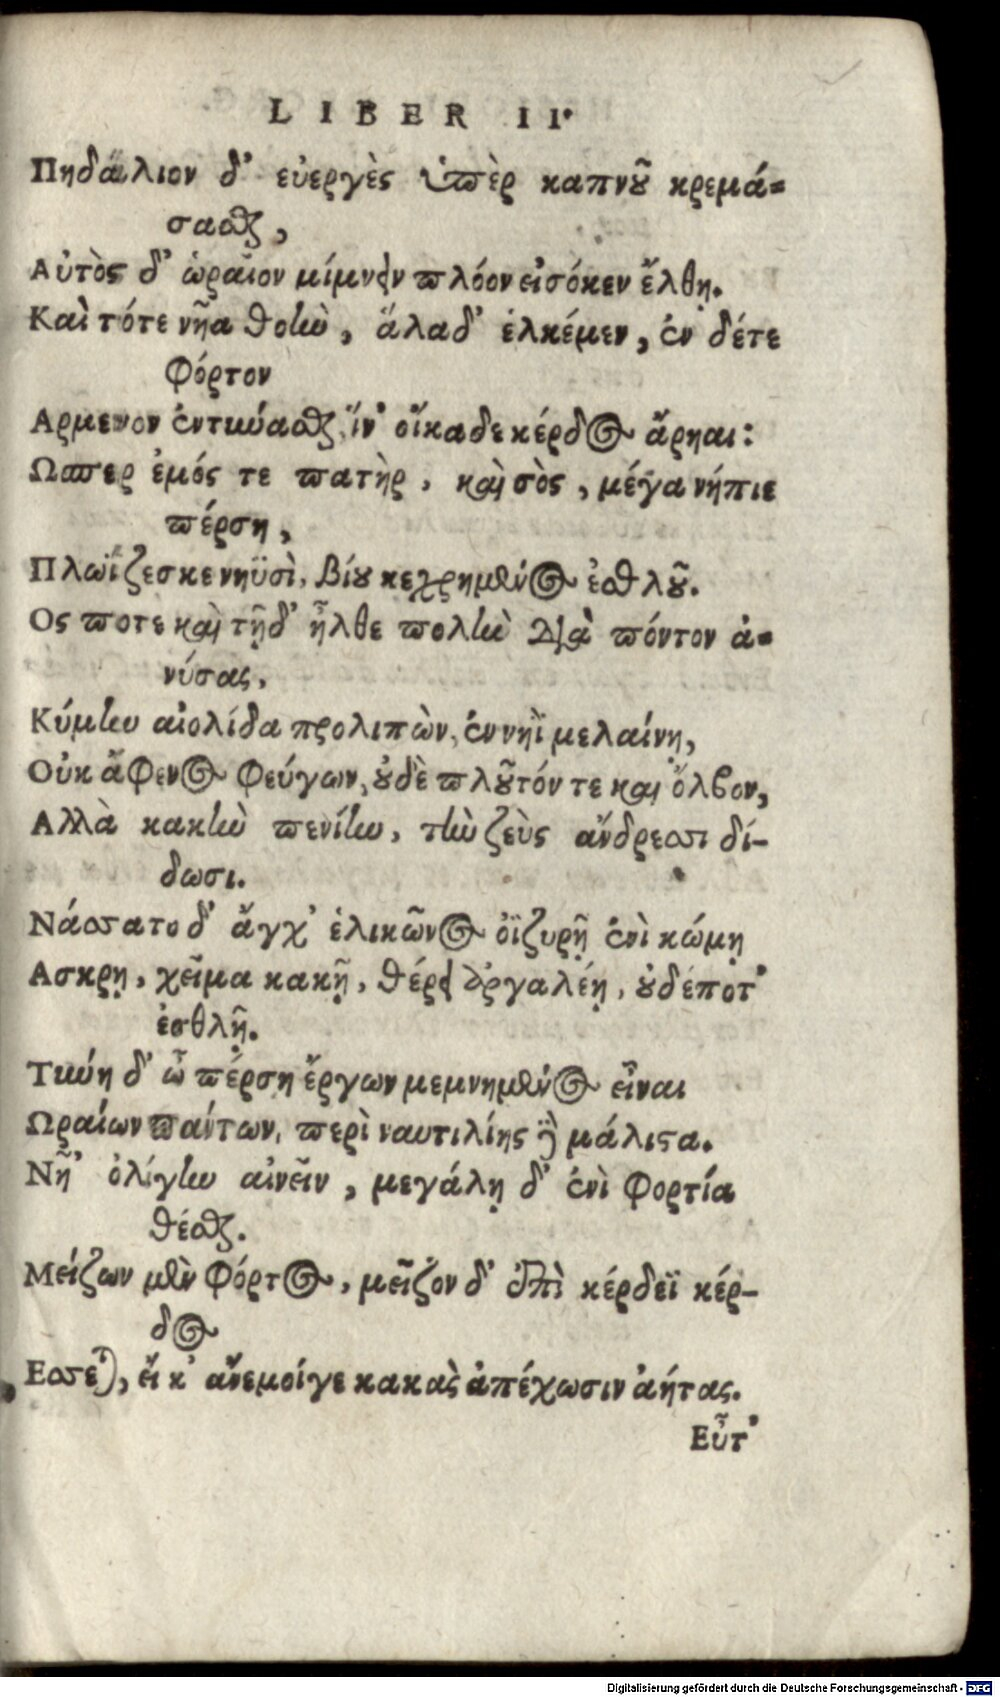 LIBER II.
Πηδάλιον δ' εὐεργὲς ὑπὲρ καπνοῦ κρεμά-
σασθαι,
Αὐτὸς δ' ὡραῖον μίμνειν πλόον εἰσόκεν ἔλθῃ.
Καὶ τότε νῆα θοὴν, ἅλαδ' ἑλκέμεν, ἐν δέ τε
φόρτον
Αρμενον ἐντύνασθαι, ἵν' οἴκαδε κέρδος ἄρηαι:
Ωσπερ ἐμός τε πατὴρ, καὶ σὸς, μέγα νήπιε
πέρση,
Πλωΐζεσκε νηϋσὶ, βίου κεχρημένος ἐσθλοῦ.
Ος ποτε καὶ τῇδ' ἦλθε πολὺν διὰ πόντον ἀ-
νύσας,
Κύμην αἰολίδα προλιπὼν, ἐν νηῒ μελαίνῃ,
Οὐκ ἄφενος φεύγων, οὐδὲ πλοῦτόν τε καὶ ὄλβον,
Αλλὰ κακὴν πενίην, τὴν ζεὺς ἄνδρεσσι δί-
δωσι.
Νάσσατο δ' ἄγχ' ἑλικῶνος ὀϊζυρῇ ἐνὶ κώμῃ
Ασκρῃ, χεῖμα κακῇ, θέρει ἀργαλέῃ, οὐδέποτ'
ἐσθλῇ.
Τύνη δ' ὦ πέρση ἔργων μεμνημένος εἶναι
Ωραίων πάντων, περὶ ναυτιλίης δὲ μάλιστα.
Νῆ' ὀλίγην αἰνεῖν, μεγάλῃ δ' ἐνὶ φορτία
θέσθαι.
Μείζων μὲν φόρτος, μεῖζον δ' ἐπὶ κέρδεϊ κέρ-
δος
Εσσεται, εἴ κ' ἄνεμοί γε κακὰς ἀπέχωσιν ἀήτας.
Εὖτ'
Digitalisierung gefördert durch die Deutsche Forschungsgemeinschaft - DFG